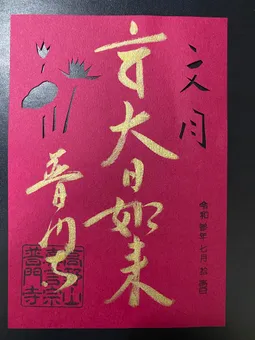 文月
大日如来
普門寺
令和 年 七月
高野山
真言宗
普門寺